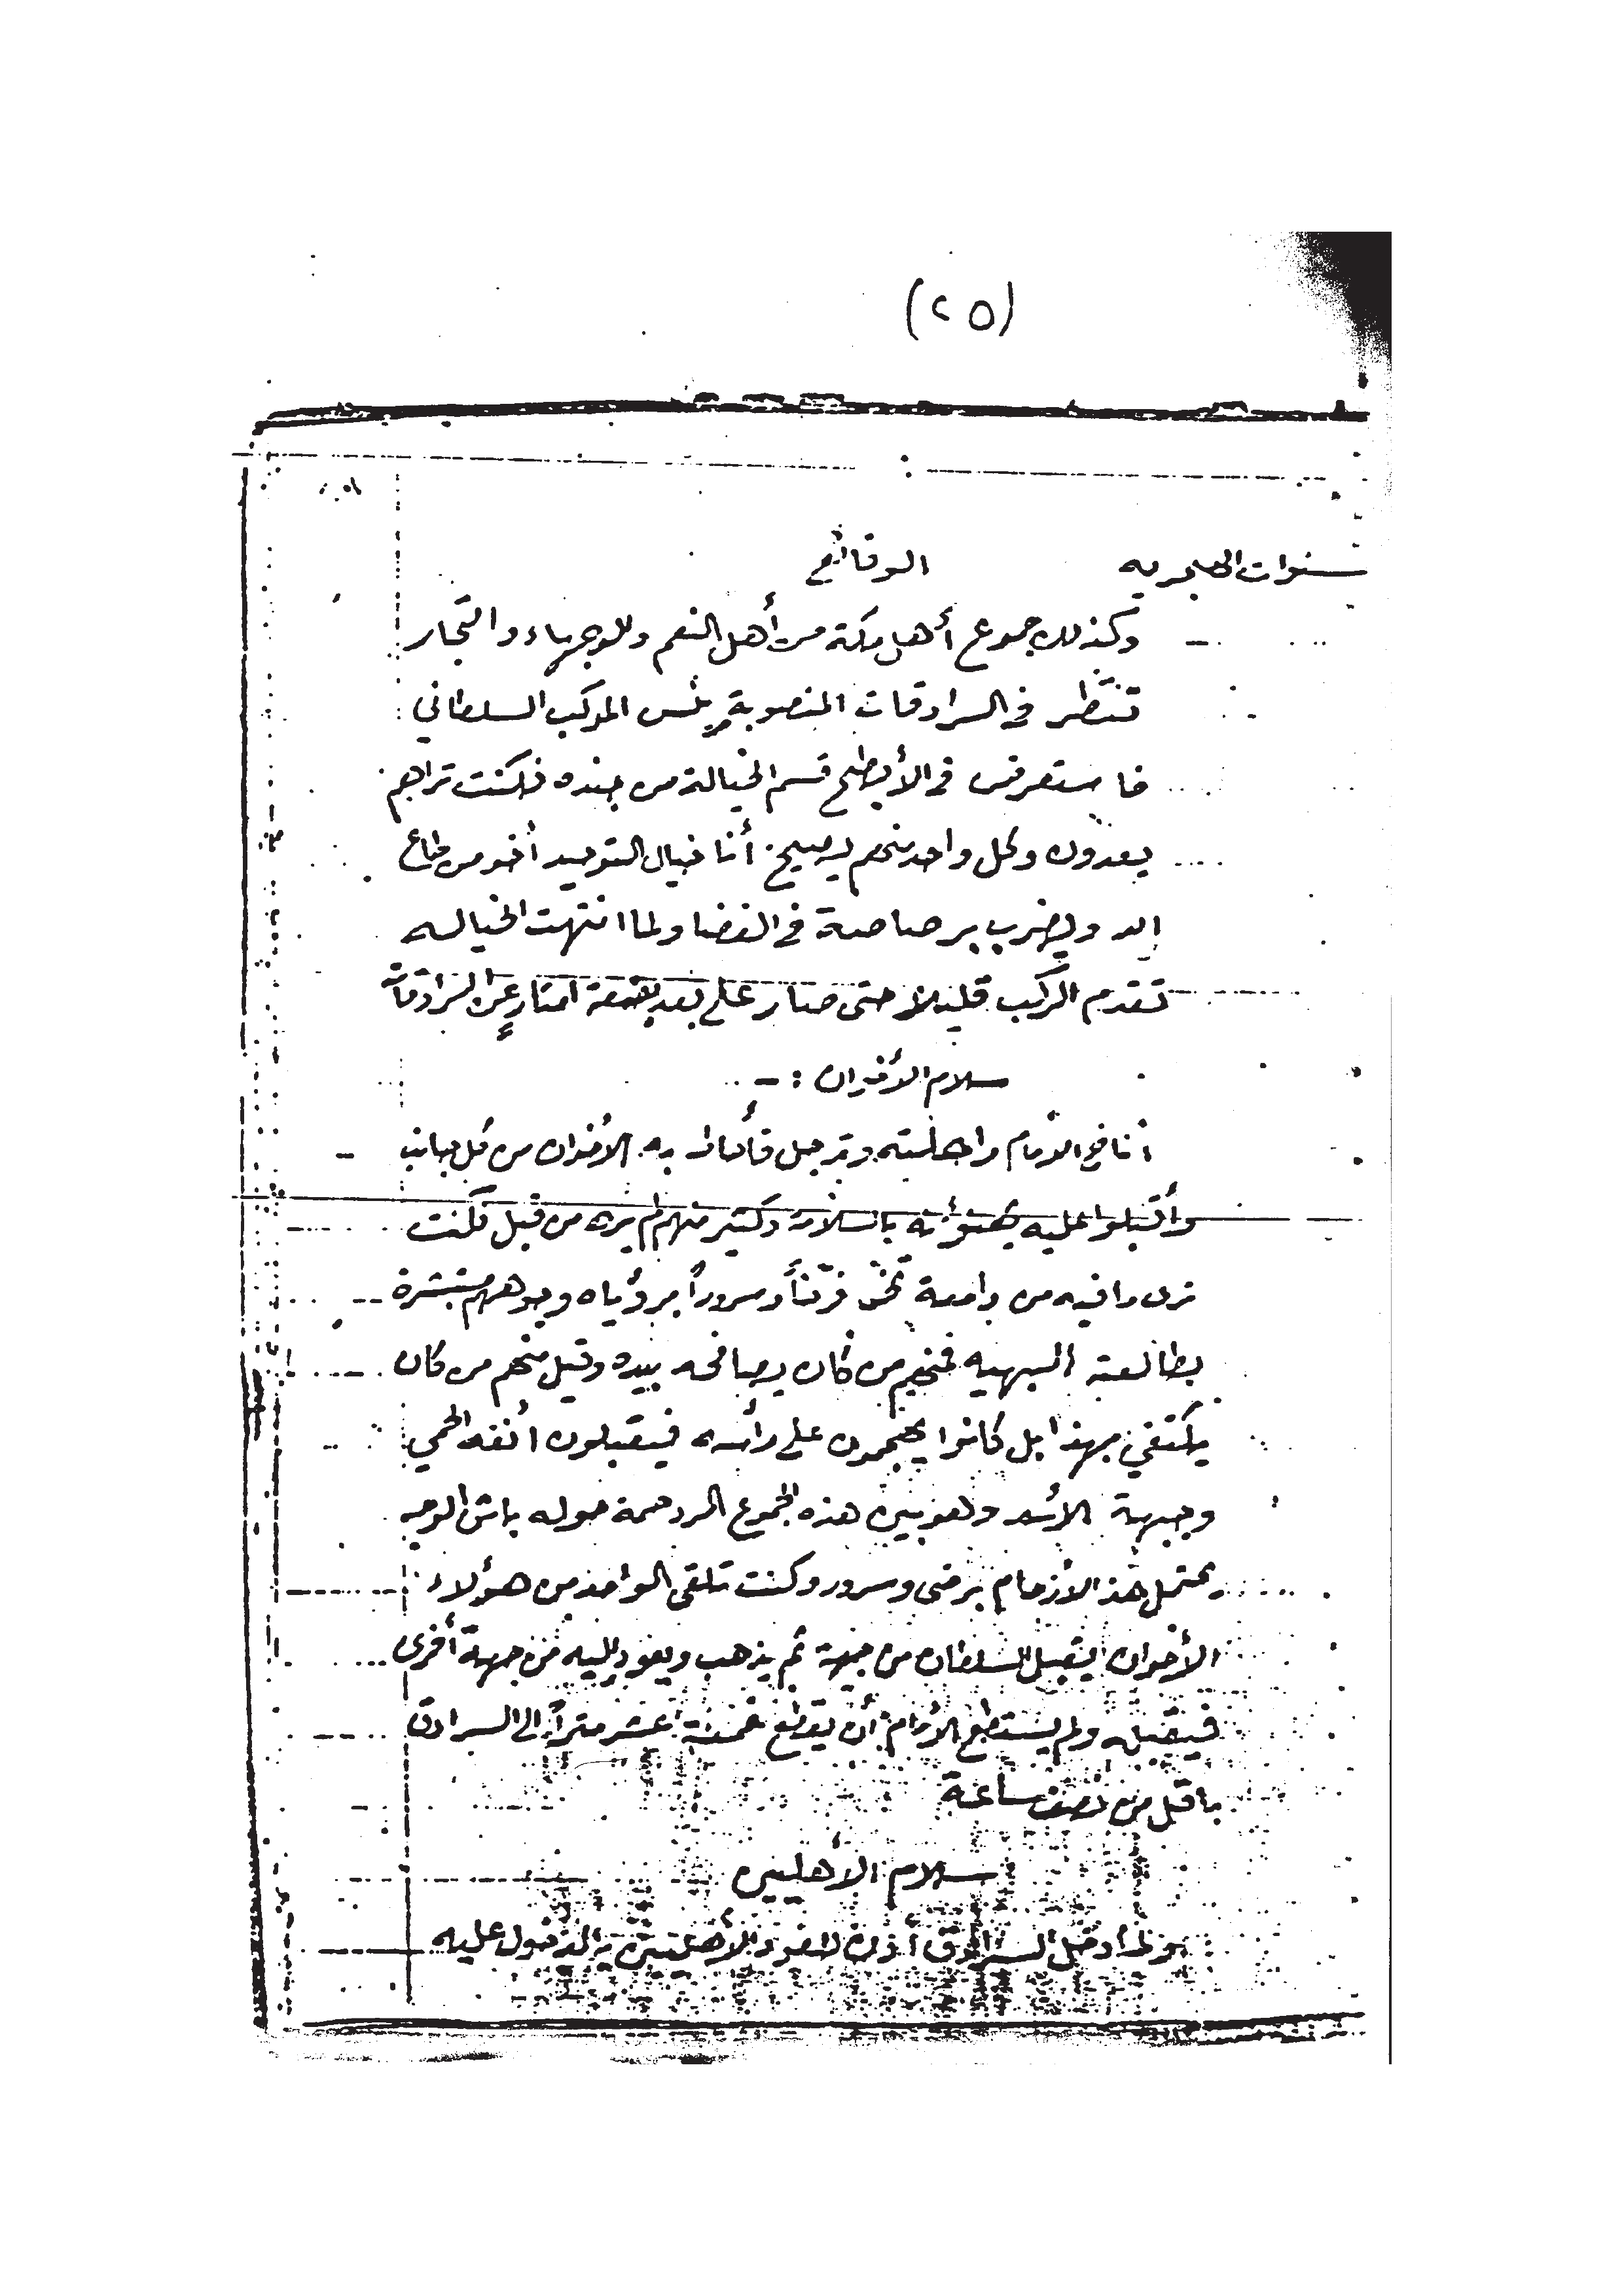 (٢٥)
سنوات الهجريه الوقائع
وكذلك جموع أهل مكة من أهل النعم وللوجهاء والتجار
تنتظر في السرادقات المنصوبة الموكب السلطاني
فاستعرض في الأبطح قسم الخيالة من جنده فكنت تراهم
يعدون وكل واحد منهم يصيح أنا خيال التوحيد أخو من طاع
الله ويضرب برصاصة في الفضا ولما انتهت الخياله
تقدم الركب قليلا حتى صار على بعد بضعة امتار عن السرادقات
سلام الأخوان : -
أناخ الامام راحلته وترجل فأحاط به الأخوان من كل جانب
وأقبلوا عليه يهنؤنه بالسلامة وكثير منهم لم يره من قبل فكنت
ترى مافيه من دامعة فرحاً وسروراً برؤياه ووجوههم مستبشرة
بطالعته البهيه فمنهم من كان يصافحه بيده وقيل منهم من كان
يكتفي بهذا بل كانوا يهجمون على رأسه فيقبلون أنفه الحمي
وجبهة الأسد وهو بين هذه الجموع المزدحمة حوله باش الوجه
يحتمل هذا الأزحام برضى وسرور وكنت تلقى الواحد من هؤلاء
الأخوان يقبل السلطان من جهة ثم يذهب ويعود إليه من جهة أخرى
فيقبله ولم يستطع الأمام أن يقطع خمسة عشر متراً إلى السرادق
باقل من نصف ساعة
سلام الأهليين
ولما دخل السرادق أذن لوفود الأهليين بالدخول عليه